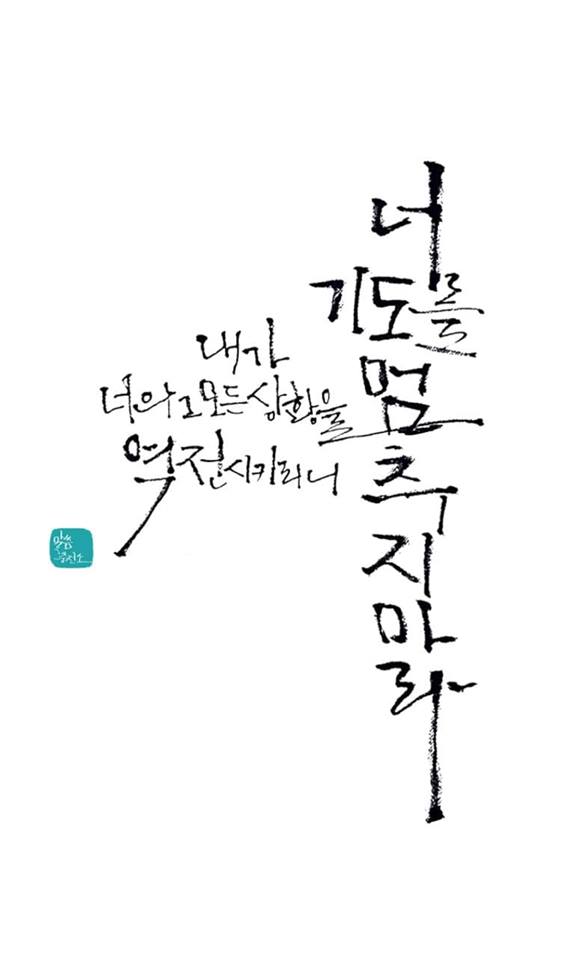 너
기도를
멈
추
지
마
라
내가
너의 그 모든 상황을
역전시키리니
말씀